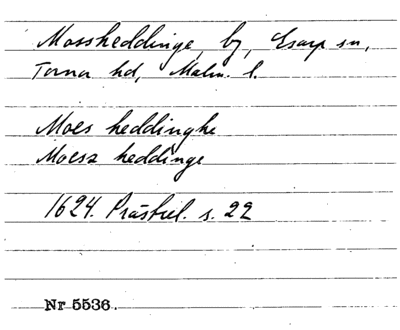 Mossheddinge, by, Esarp sn,
Torna hd, Malm. l.
Moes heddinghe
Moesz heddinge
1624. Prästrel. s. 22
Nr 5536.